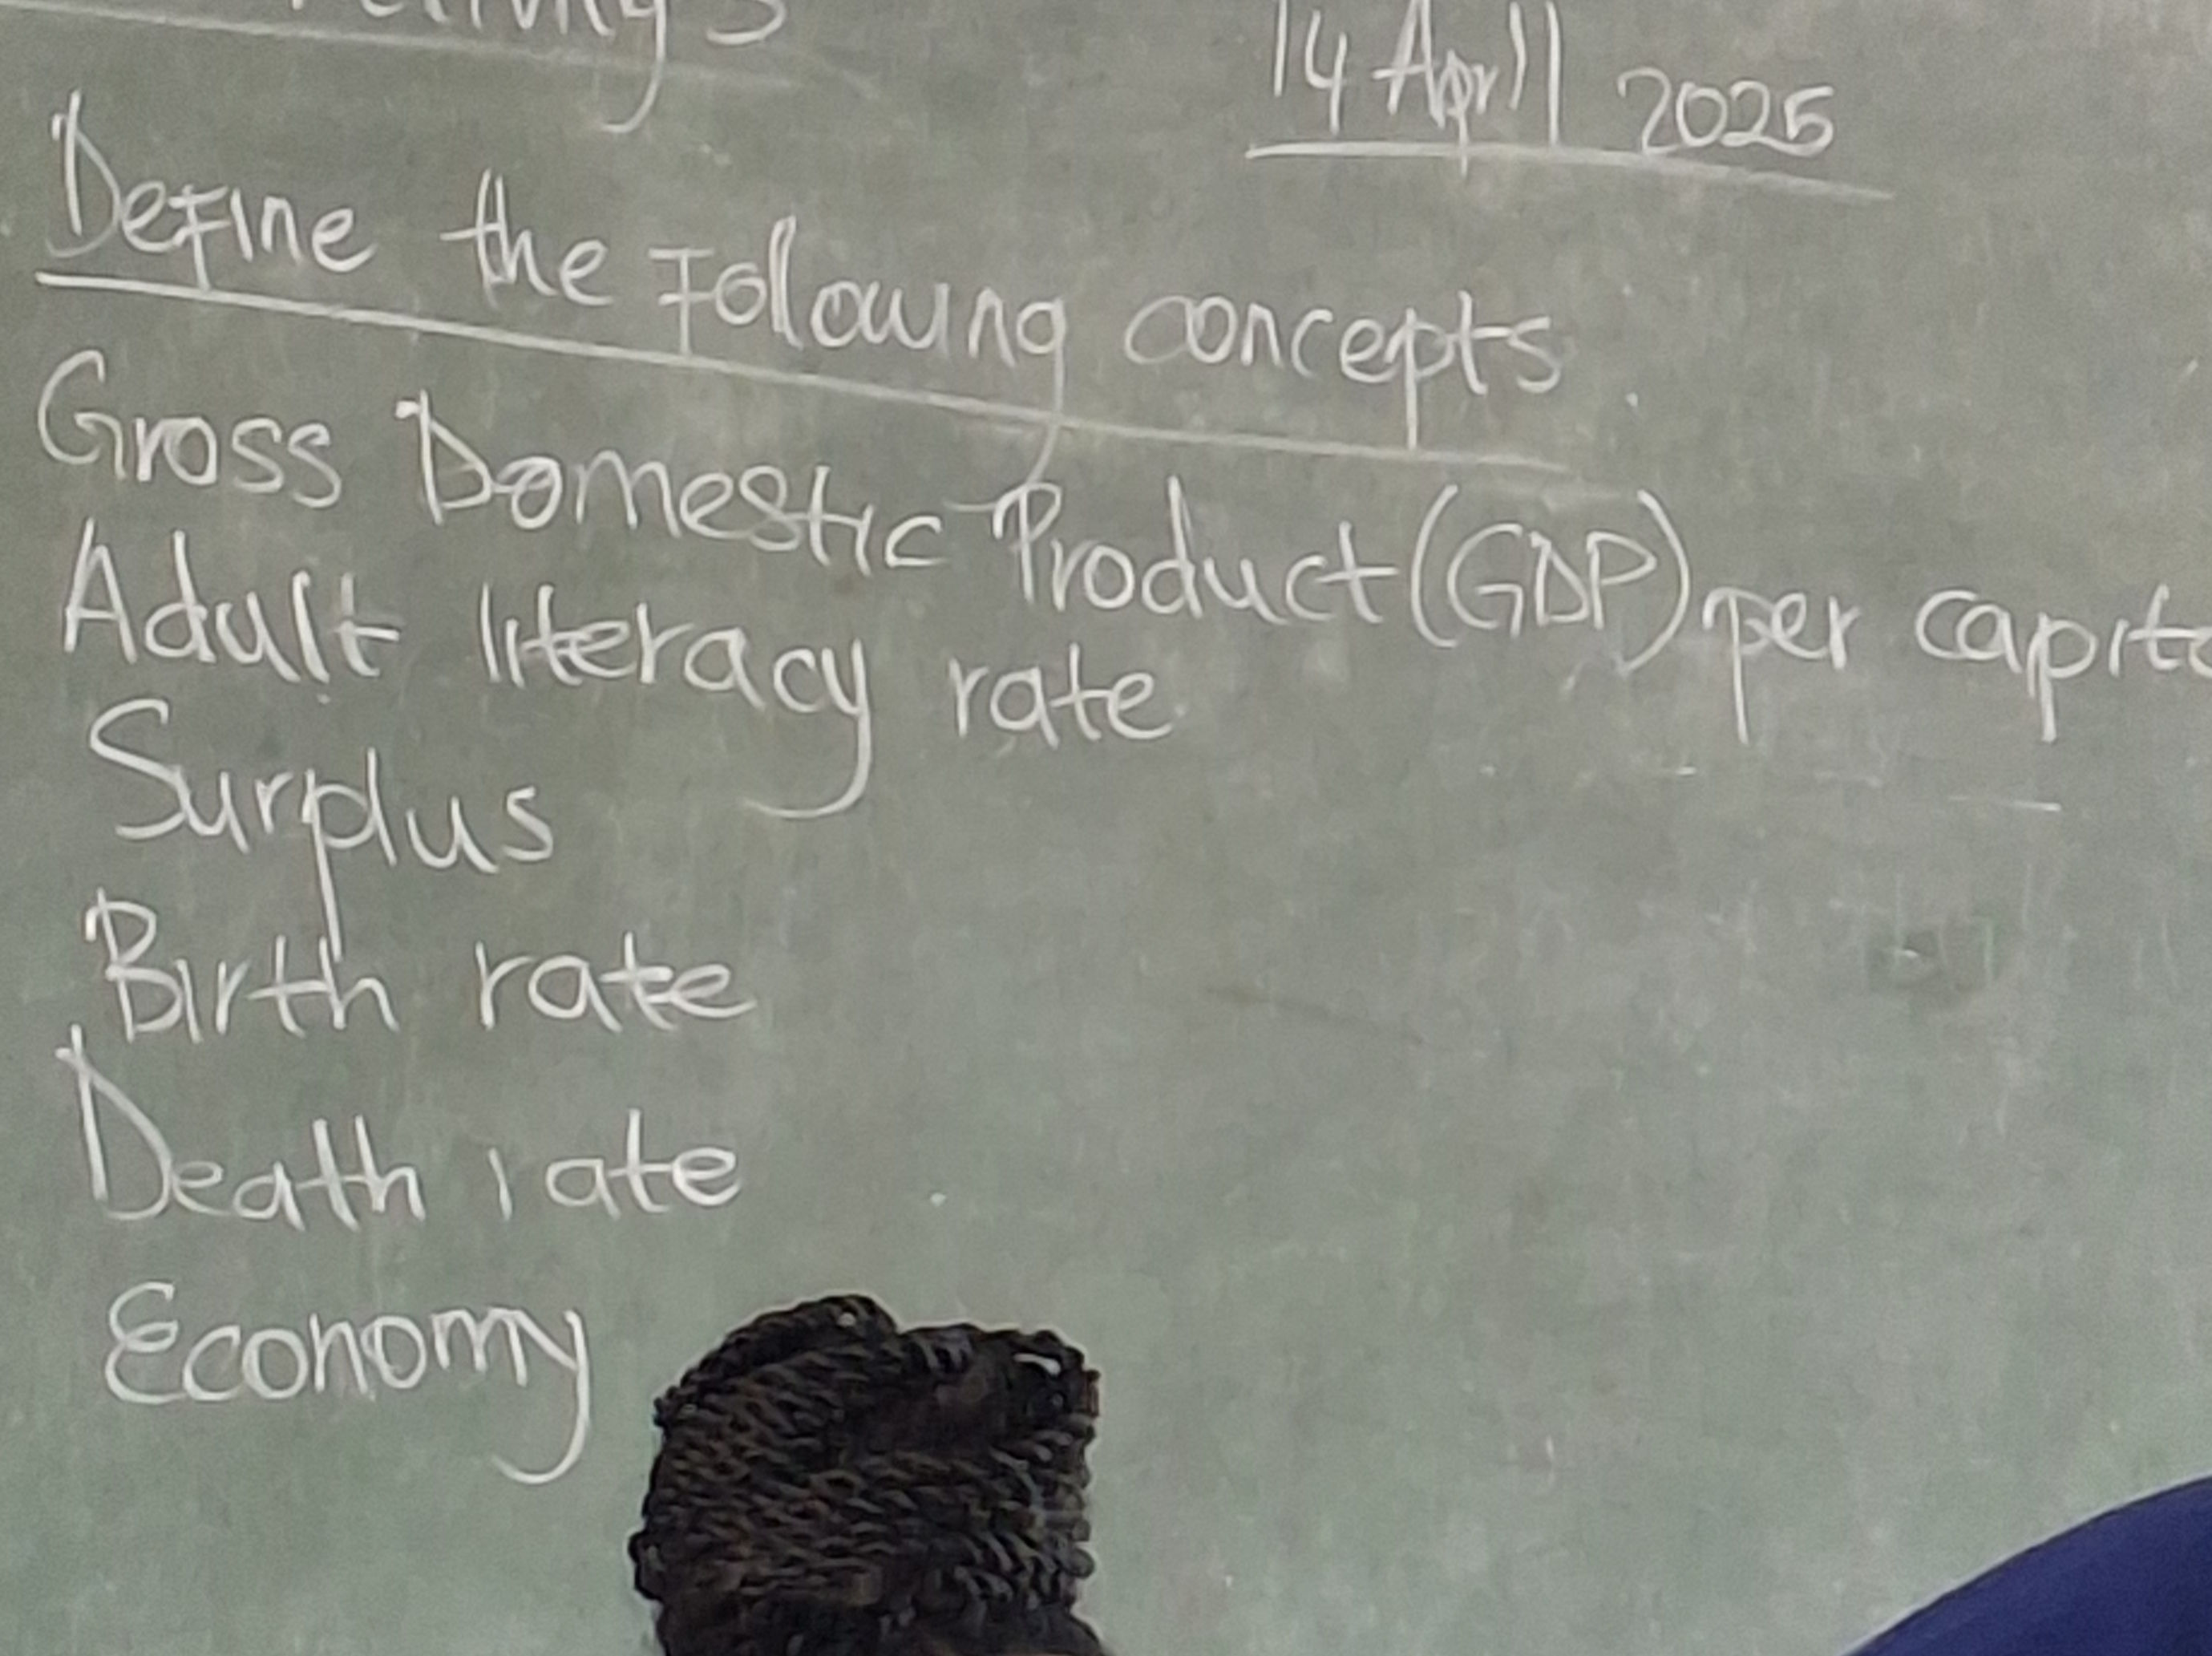 14 April 2025
Define the Following concepts.
Gross Domestic Product (GDP) per capita
Adult literacy rate
Surplus
Birth rate
Death rate
Economy